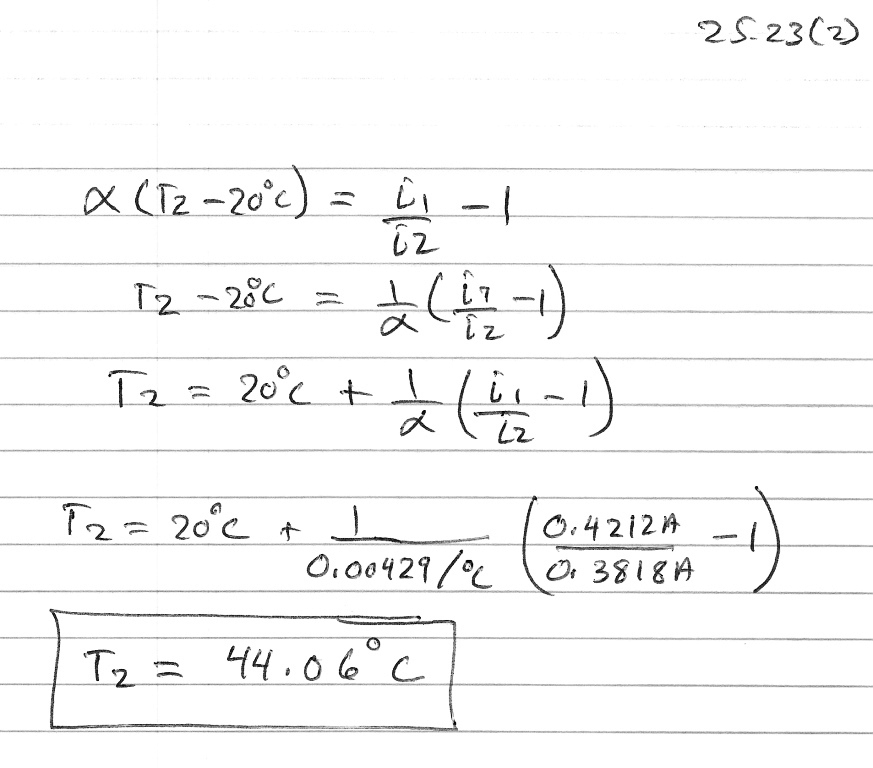 25.23(2)
α (T2 - 20°C) = i1/i2 - 1
T2 - 20°C = 1/α (i1/i2 - 1)
T2 = 20°C + 1/α (i1/i2 - 1)
T2 = 20°C + 1/0.00429/°C (0.4212A/0.3818A - 1)
T2 = 44.06°C